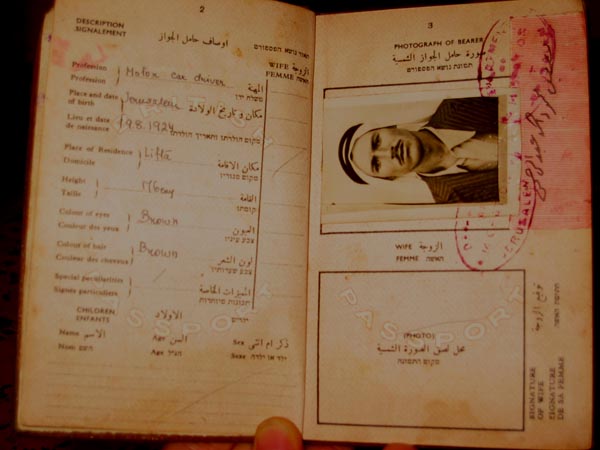 2
DESCRIPTION
SIGNALEMENT
اوصاف حامل الجواز
תאור נושא הפספורט
WIFE الزوجة
FEMME האשה
Profession
Profession
Motor car driver
المهنة
משלח יד
Place and date
of birth
Jerusalem
مكان وتاريخ الولادة
Lieu et date
de naissance
19.8.1924
מקום הולדתו ותאריך הולדתו
Place of Residence
Domicile
Lifta
مكان الاقامة
מקום מגוריו
Height
Taille
القامة
קומתו
Colour of eyes
Couleur des yeux
Brown
العيون
צבע עיניו
Colour of hair
Couleur des cheveux
Brown
لون الشعر
צבע שערותיו
Special peculiarities
Signes particuliers
المميزات الخاصة
תכונות מיוחדות
CHILDREN
ENFANTS
الاولاد
ילדים
Name الاسم
Nom השם
Age السن
Age הגיל
Sex ذكر ام انثى
Sexe ילד או ילדה
PASSPORT
3
PHOTOGRAPH OF BEARER
صورة حامل الجواز الشمسية
תמונת נושא הפספורט
JERUSALEM
WIFE الزوجة
FEMME האשה
PASSPORT
(PHOTO)
محل لصق الصورة الشمسية
מקום התמונה
توقيع الزوجة
חתימת האשה
SIGNATURE
OF WIFE
SIGNATURE
DE SA FEMME